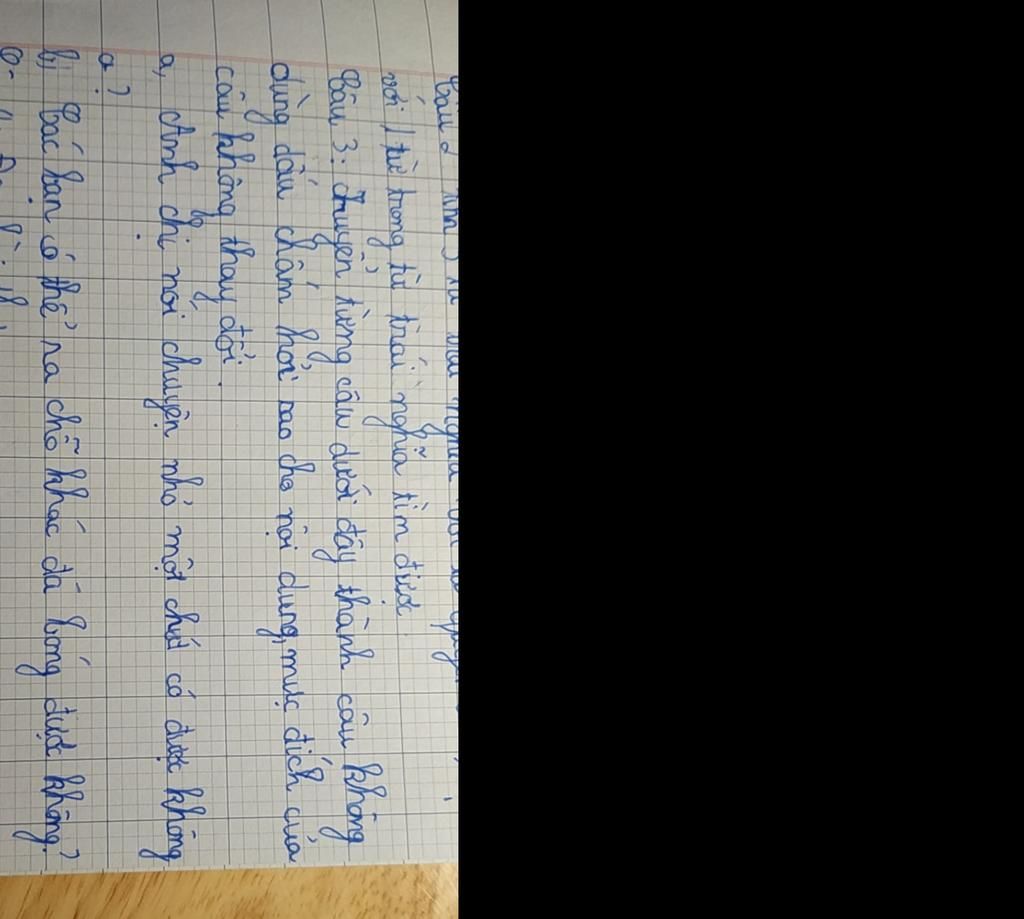 Câu 2
với 1 từ trong từ trái nghĩa tìm được.
Câu 3: Chuyển từng câu dưới đây thành câu không
dùng dấu chấm hỏi sao cho nội dung, mục đích của
câu không thay đổi.
a, Anh chị nói chuyện nhỏ một chút có được không
ạ?
b, Các bạn có thể ra chỗ khác đá bóng được không?